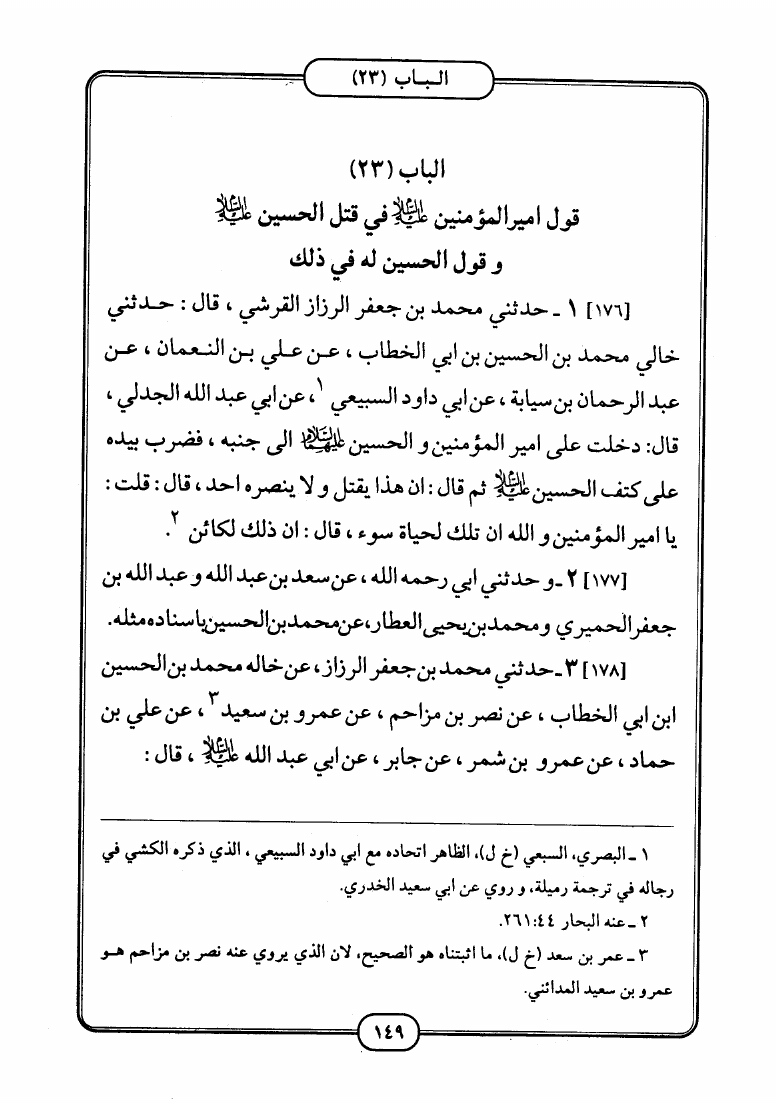 الـبـاب (٢٣)
الباب (٢٣)
قول اميرالمؤمنين عليه السلام في قتل الحسين عليه السلام
و قول الحسين له في ذلك
[١٧٦] ١ ـ حدثني محمد بن جعفر الرزاز القرشي ، قال : حـدثني
خالي محمد بن الحسين بن ابي الخطاب ، عـن عـلي بـن النـعمان ، عـن
عبد الرحمان بن سيابة ، عن ابي داود السبيعي ١، عن ابي عبد الله الجدلي ،
قال: دخلت على امير المؤمنين و الحسين عليهما السلام الى جنبه ، فضرب بيده
على كتف الحسين عليه السلام ثم قال : ان هذا يقتل و لا ينصره احد ، قال : قلت :
يا امير المؤمنين و الله ان تلك لحياة سوء ، قال : ان ذلك لكائن ٢.
[١٧٧] ٢ ـ و حدثني ابي رحمه الله ، عن سعد بن عبد الله و عبد الله بن
جعفر الحميري و محمد بن يحيى العطار، عن محمد بن الحسين باسناده مثله.
[١٧٨] ٣ ـ حدثني محمد بن جعفر الرزاز ، عن خاله محمد بن الحسين
ابن ابي الخطاب ، عن نصر بن مزاحم ، عن عمرو بن سعيد ٣، عن علي بن
حماد ، عن عمرو بن شمر ، عن جابر ، عن ابي عبد الله عليه السلام ، قال :
١ ـ البصري، السبعي (خ ل)، الظاهر اتحاده مع ابي داود السبيعي ، الذي ذكره الكشي في
رجاله في ترجمة رميلة، و روي عن ابي سعيد الخدري.
٢ ـ عنه البحار ٢٦١:٤٤.
٣ ـ عمر بن سعد (خ ل)، ما اثبتناه هو الصحيح، لان الذي يروي عنه نصر بن مزاحم هـو
عمرو بن سعيد المدائني.
١٤٩